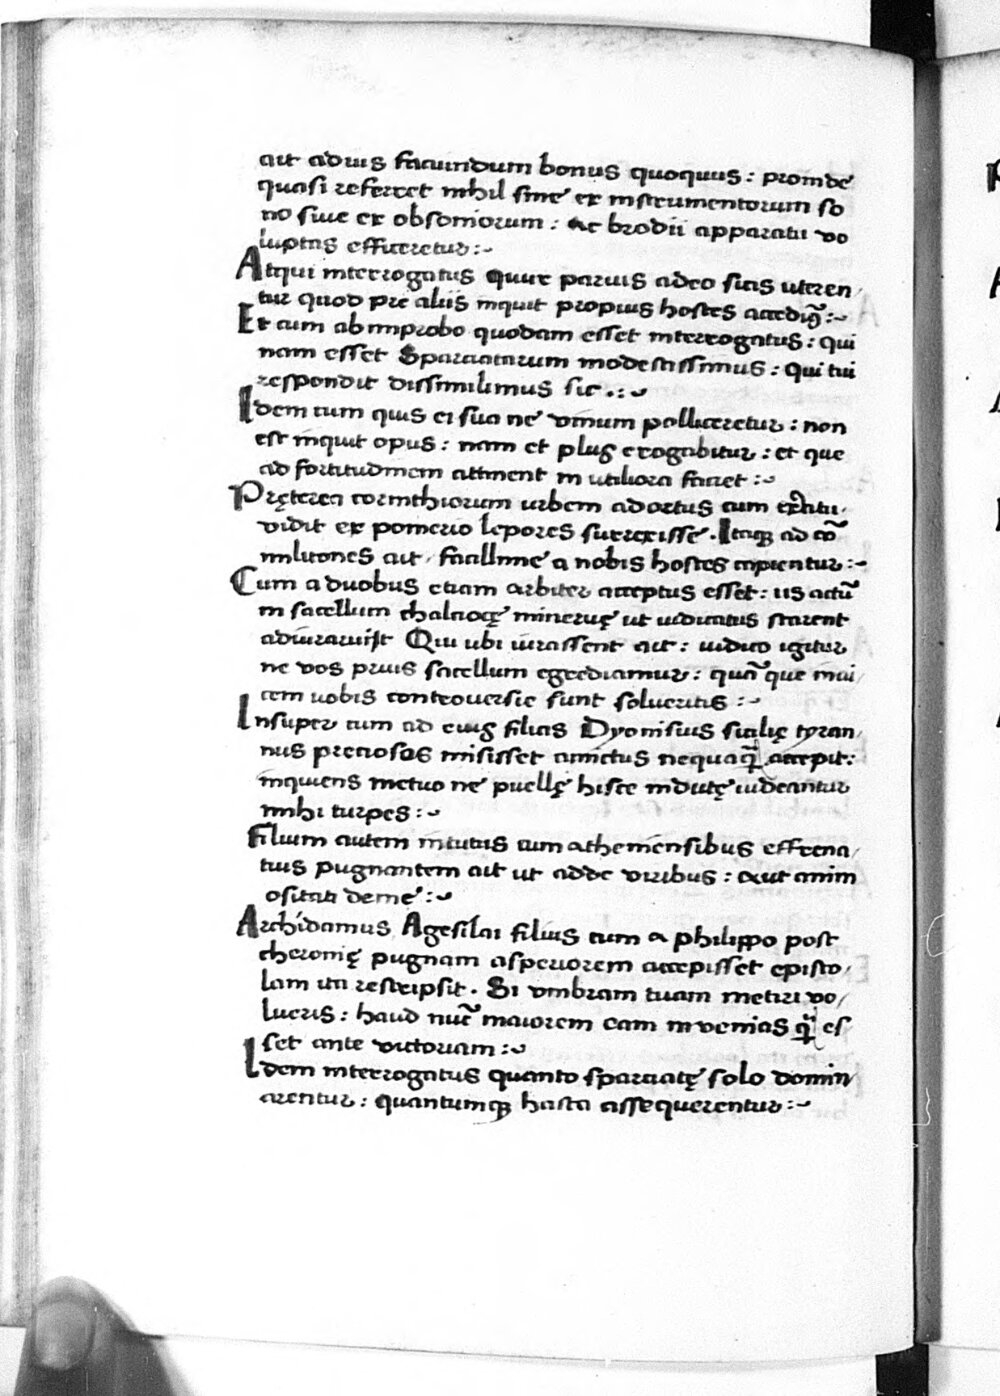 ait ad ius faciundum bonus quoquus : proinde
quasi referret nihil siue ex instrumentorum so
no siue ex obsoniorum : ac brodii apparatu vo
luptas efficeretur :~
Atqui interrogatus quur paruis adeo sicis uteren,
tur quod pre aliis inquit propius hostes accediꝰ :~
Et cum ab improbo quodam esset interrogatus : qui
nam esset Sparciatarum modestissimus : Qui tui
respondit dissimilimus sic .:~
Idem cum quis ei sua ne vinum polliceretur : non
est inquit opus : nam et plus erogabitur : et que
ad fortitudinem attinent inutiliora faciet :~
Pręterea corinthiorum urbem adortus cum
vidit ex pomerio lepores surrexisse . Itaqꝫ ad cō
militones ait , facillime a nobis hostes capientur :~
Cum a duobus etiam arbiter acceptus esset : iis actū
in sacellum chalcioecę mineruę ut iudicatis starent
adiurauit Qui ubi iurassent ait : iudico igitur
ne vos prius sacellum egrediamur : quā que inui
cem uobis controuersie sunt solueritis :~
Insuper cum ad eius filias Dyonisius sicilię tyran,
nus preciosas misisset amictus nequaq̄ accepit :
inquiens metuo ne puellę hisce indutę uideantur
mihi turpes :~
Filium autem intutus cum atheniensibus effrena,
tius pugnantem ait ut adde viribus : aut anim
ositati deme :~
Archidamus Agesilai filius cum a philippo post
cheronię pugnam asperiorem accepisset episto,
lam ita rescripsit . Si vmbram tuam metiri vo,
lueris : haud nūc maiorem eam inuenias q̄ es
set ante victoriam :~
Idem interrogatus quanto sparciatę solo domin
arentur : quantumqꝫ hasta assequerentur :~